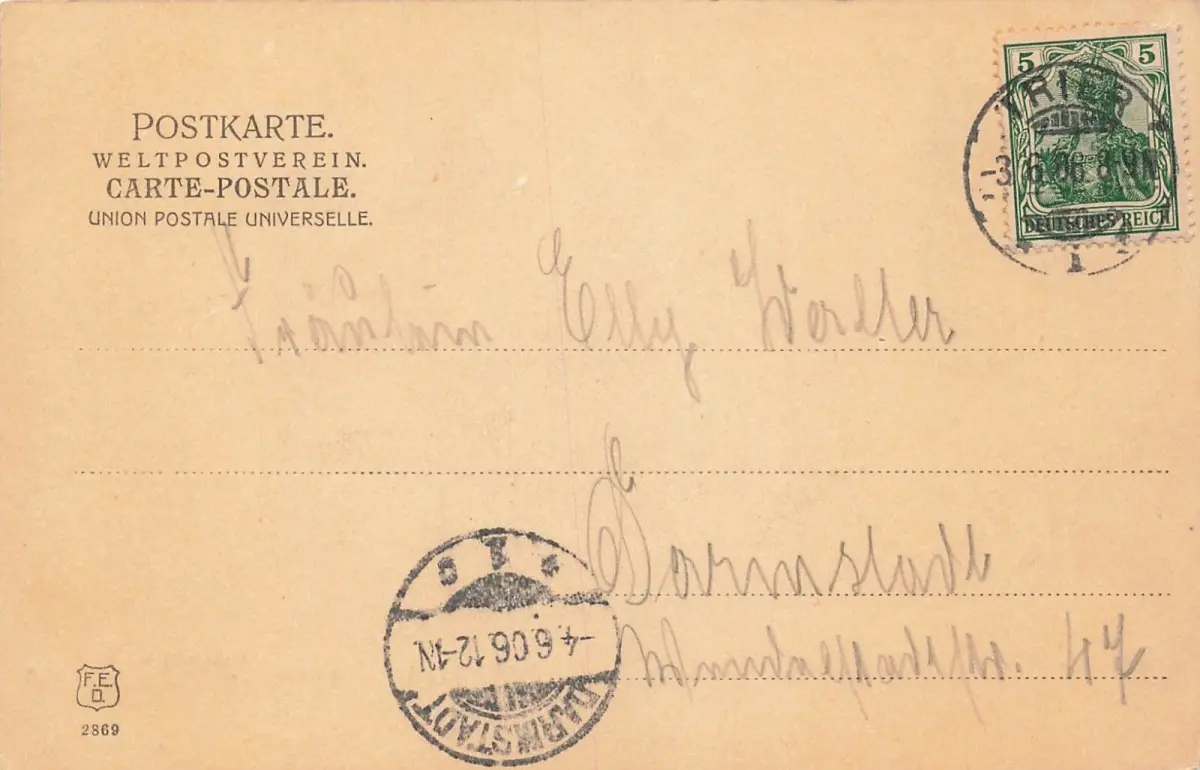 POSTKARTE.
WELTPOSTVEREIN.
CARTE-POSTALE.
UNION POSTALE UNIVERSELLE.
5 5
TRIER
3.6.06.8-9N
DEUTSCHES REICH
* 1 *
Fräulein Elly
Darmstadt
47
* 1 c
-4.6.06.12-1N.
DARMSTADT
F.E.
D.
2869